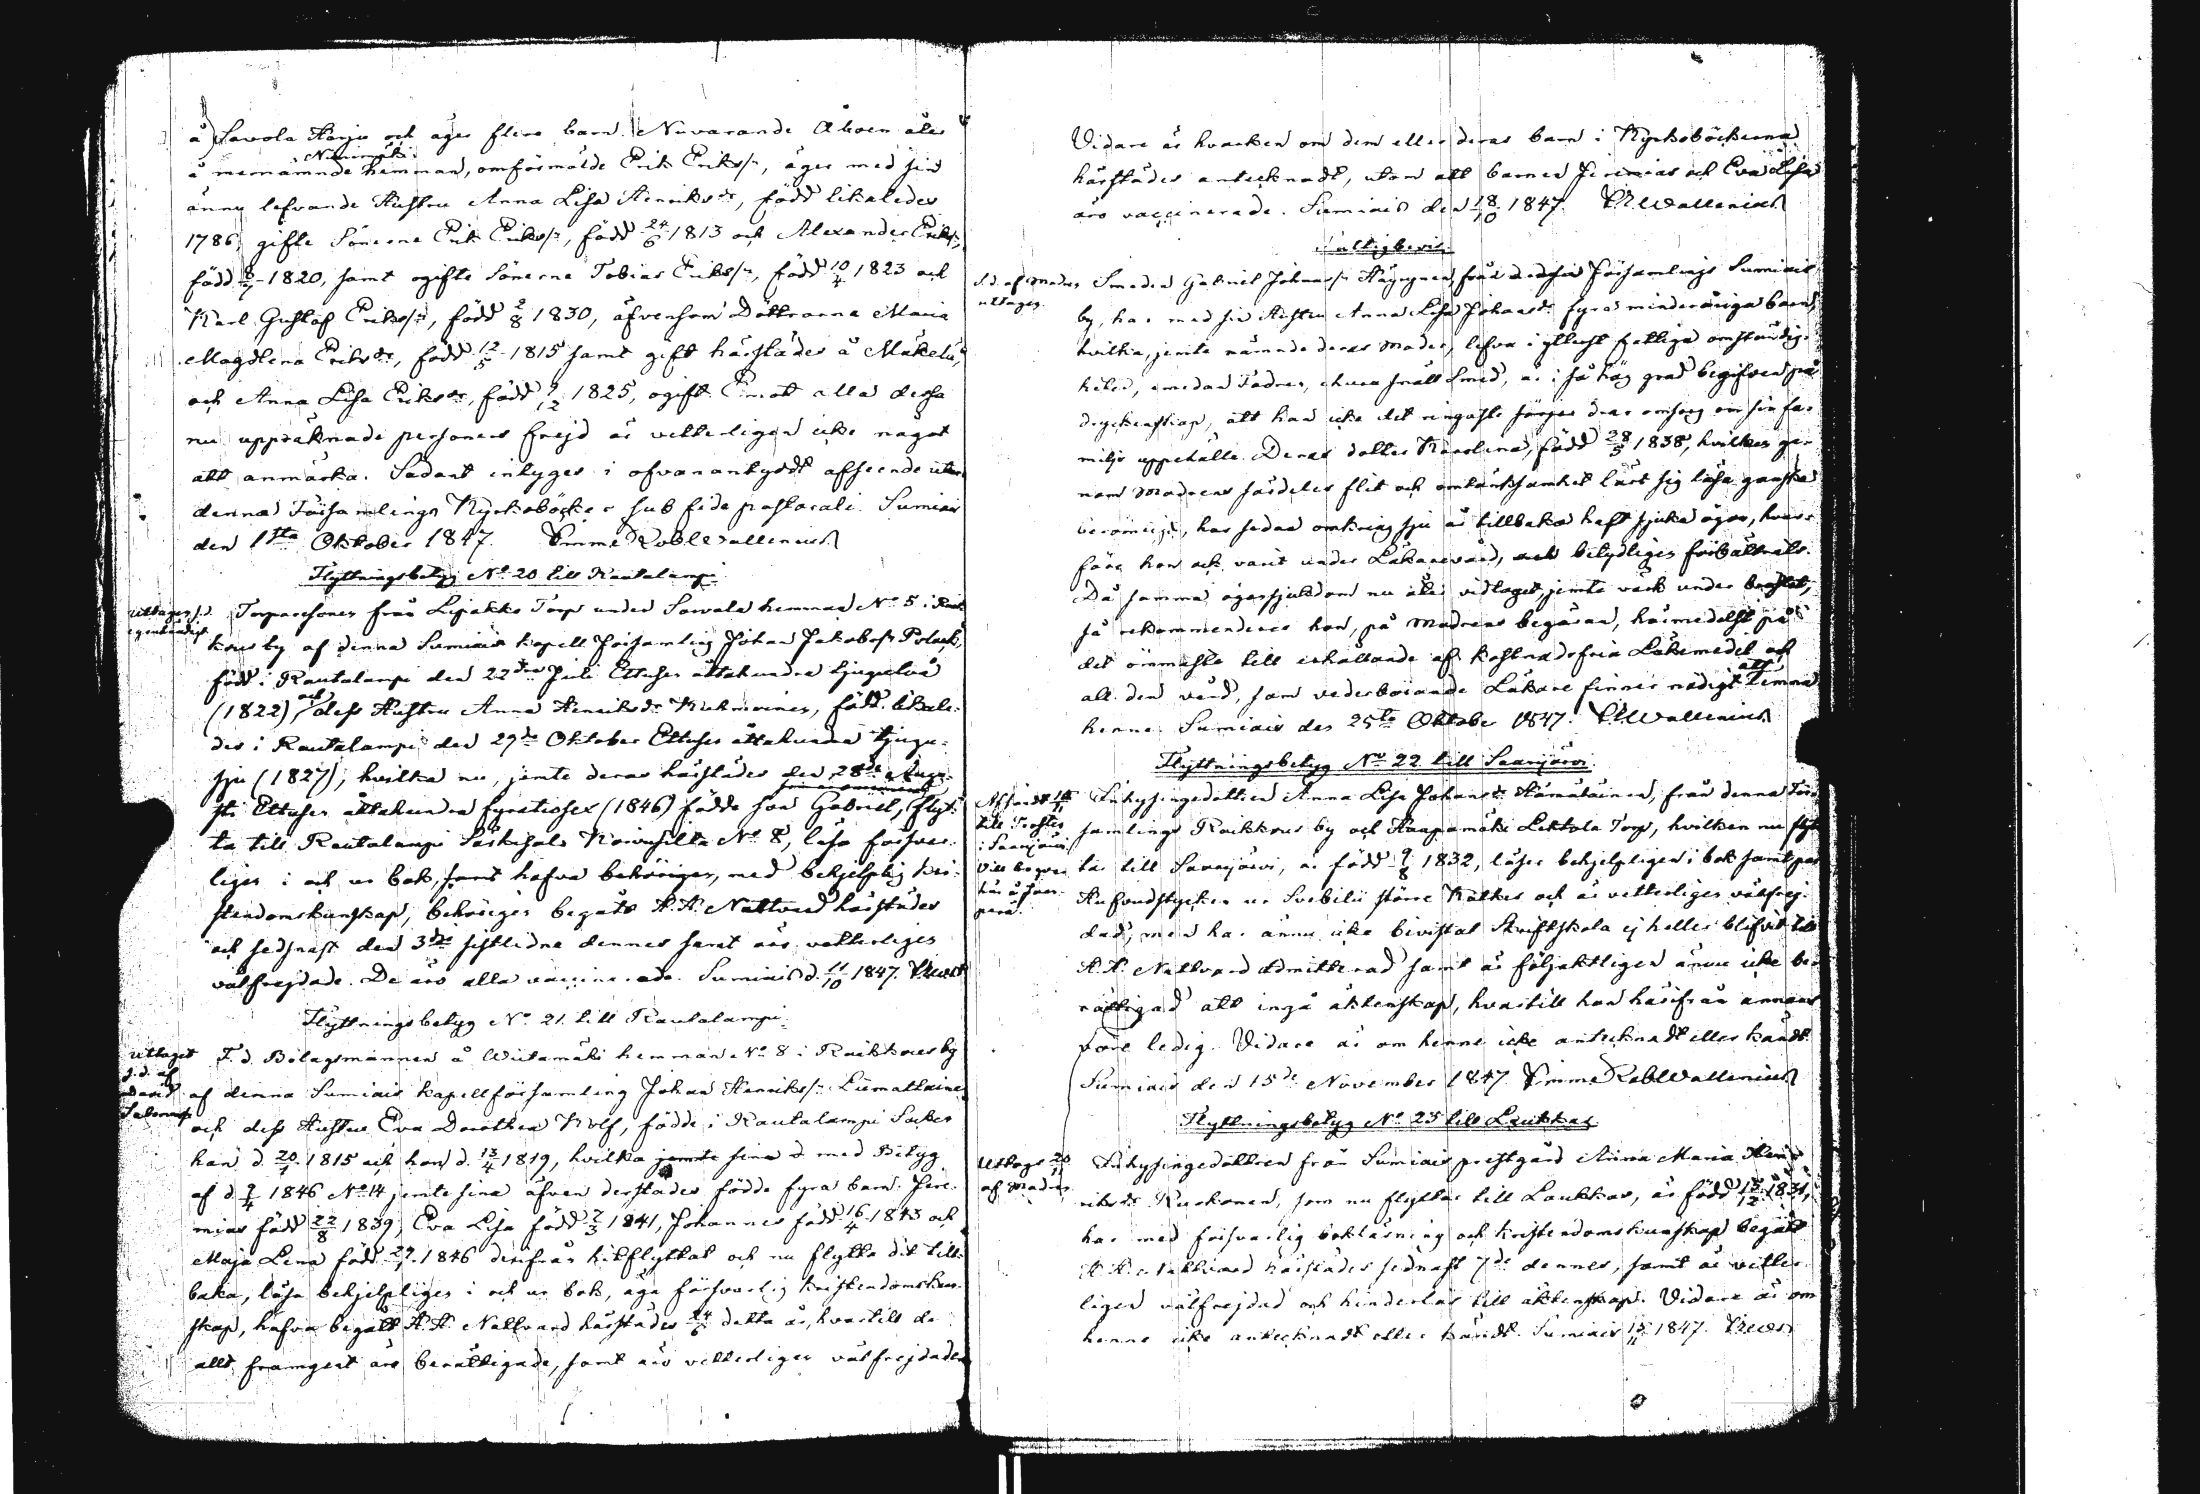 å Savola Harju och äger flere barn. Nuvarande Åboen åter
Niinimäki
å mernämnde hemman, omförmälde Erik Eriks/n, äger med sin
ännu lefvande Hustru Anna Lisa Henriksdr, född likaledes
1786, gifte Sönerne Erik Eriks/n, född 24/6 1813 och Alexander Eriks/n,
född 1820, samt ogifte Sönerne Tobias Eriks/n, född 10/4 1823 och
Karl Gustaf Eriks/n, född 2/8 1830, äfvensom Döttrarna Maria
Magdlena Eriksdr, född 12/5 1815 samt gift härstädes å Mäkelä,
och Anna Lisa Eriksdr, född 9/12 1825, ogift. Emot alla dessa
nu uppräknade personers frejd är vetterligen icke något
att anmärka. Sådant intygas i ofvanantydde afseende utur
denna Församlings Kyrkoböcker sub fide pastorali. Sumiais
den 1sta Oktober 1847. Emme Rob Wallenius
Flyttningsbetyg No 20 till Rautalampi
uttagit s.d.
egenhändigt
Torparesonen från Lejakko Torp under Savola hemman No 5 i Raik-
kous by af denna Sumiais kapell församling Johan Jakobs/n
född i Rautalampi den 22dra Juli Ettusen åttahundra tjugutvå
(1822), och dess Hustru Anna Henriksdr född likale-
des i Rautalampi den 29de Oktober Ettusen åttahundra tjugu-
sju (1827), hvilka nu, jemte deras härstädes den 28de Augu-
sti Ettusen åttahundra fyratiosex (1846) födde son Gabriel, flyt-
ta till Rautalampi Koivusilta No 8, läsa försvar-
ligen i och ur bok, samt hafva behörigen, med behjelplig kri-
stendomskunskap, behörigen begått H. H. Nattvard härstädes
och sednast den 3dje sistlidne dennes samt äro vetterligen
välfrejdade. De äro alla vaccinerade. Sumiais d. 11/10 1847.
Flyttningsbetyg No 21 till Rautalampi
uttaget
s. d. af
F. d. Bolagsmannen å Wiitamäki hemman No 8 i Raikkous by
af denna Sumiais kapellförsamling Johan Henriks/n Liimattainen
och dess Hustru Eva Dorothea Rolf, födde i Rautalampi Socken
han d. 20/1 1815 och hon d. 13/4 1819, hvilka jemte sina d. med Betyg
af d. 9/4 1846 No 14 jemte sina äfven derstädes födde fyra barn Jere-
mias född 22/8 1839, Eva Lisa född 7/3 1841, Johannes född 16/4 1843 och
Maja Lena född 1846 derifrån hitflyttat och nu flytta dit till-
baka, läsa behjelpligen i och ur bok, äga försvarlig kristendomskun-
skap, hafva begått H. H. Nattvard härstädes detta år, hvartill de
allt framgent äro berättigade, samt äro vetterligen välfrejdade.
Vidare är hvarken om dem eller deras barn i Kyrkoböckerna
härstädes antecknadt, utom att barnen Jeremias och Eva Lisa
äro vaccinerade. Sumiais den 18/10 1847. Wallenius
Fattigbevis
s. d. af Modren
uttaget.
Smeden Gabriel Johans/n från denna Församlings Sumiais
by, har med sin Hustru Anna Lisa Johansdr fyra minderåriga barn,
hvilka, jemte nämnde deras Moder, lefva i ytterst fattiga omständig-
heter, emedan Fadren, ehuru snäll Smed, är i så hög grad begifven på
dryckenskap, att han icke det ringaste sörjer drar omsorg om sin fa-
miljs uppehälle. Deras dotter Karolina, född 28/5 1838, hvilken ge-
nom Modrens särdeles flit och omtänksamhet lärt sig läsa ganska
berömligt, har sedan omkring sju år tillbaka haft sjuka ögon, hvar-
före hon ock varit under Läkarevård, och betydligen förbättrats.
Då samma ögonsjukdom nu åter vidtaget, jemte värk under bröstet,
så rekommenderas hon, på Modrens begäran, härmedelst på
det ömmaste till erhållande af kostnadsfria Läkemedel och
all den vård, som vederbörande Läkare finner nödigt att lemna
henne. Sumiais den 25te Oktober 1847. Wallenius
Flyttningsbetyg No 22 till Saarijärvi
Afsändt
till Prosten
i Saarijärvi
Inhysingedottren Anna Lisa Johansdr Hämäläinen, från denna För-
samlings Raikkous by och Haapamäki Lehtola Torp, hvilken nu flyt-
tar till Saarijärvi, är född 9/8 1832, läser behjelpligen i bok samt par
Hufvudstycken ur Svebilii större Katkes och är vetterligen välfrej-
dad, men har ännu icke bivistat Skriftskola ej heller blifvit till
H. H. Nattvard admitterad samt är följaktligen ännu icke be-
rättigad att ingå äktenskap, hvartill hon härifrån annars
vore ledig. Vidare är om henne icke antecknadt eller kändt.
Sumiais den 15de November 1847. Emme Rob Wallenius
Flyttningsbetyg No 23 till Laukkas
Uttagit
af Modren
Inhysingedottren från Sumiais prestgård Anna Maria Hen-
riksdr som nu flyttar till Laukkas, är född 1831,
har med försvarlig bokläsning och kristendomskunskap begått
H. H. Nattvard härstädes sednast 7de dennes, samt är vetter-
ligen välfrejdad och hinderlös till äktenskap. Vidare är om
henne icke antecknadt eller kändt. Sumiais 15/11 1847.